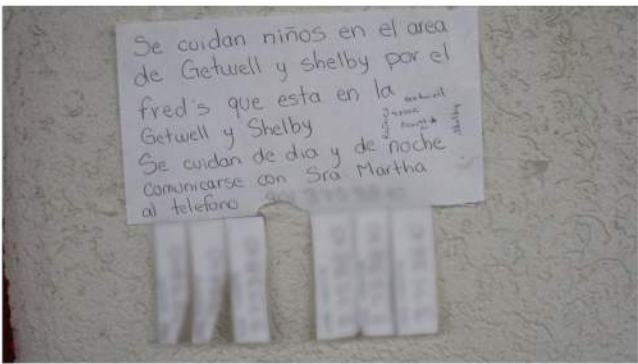 Se cuidan niños en el area
de Getwell y shelby por el
fred's que esta en la
Getwell y Shelby
Se cuidan de dia y de noche
comunicarse con Sra Martha
al telefono
Shelby